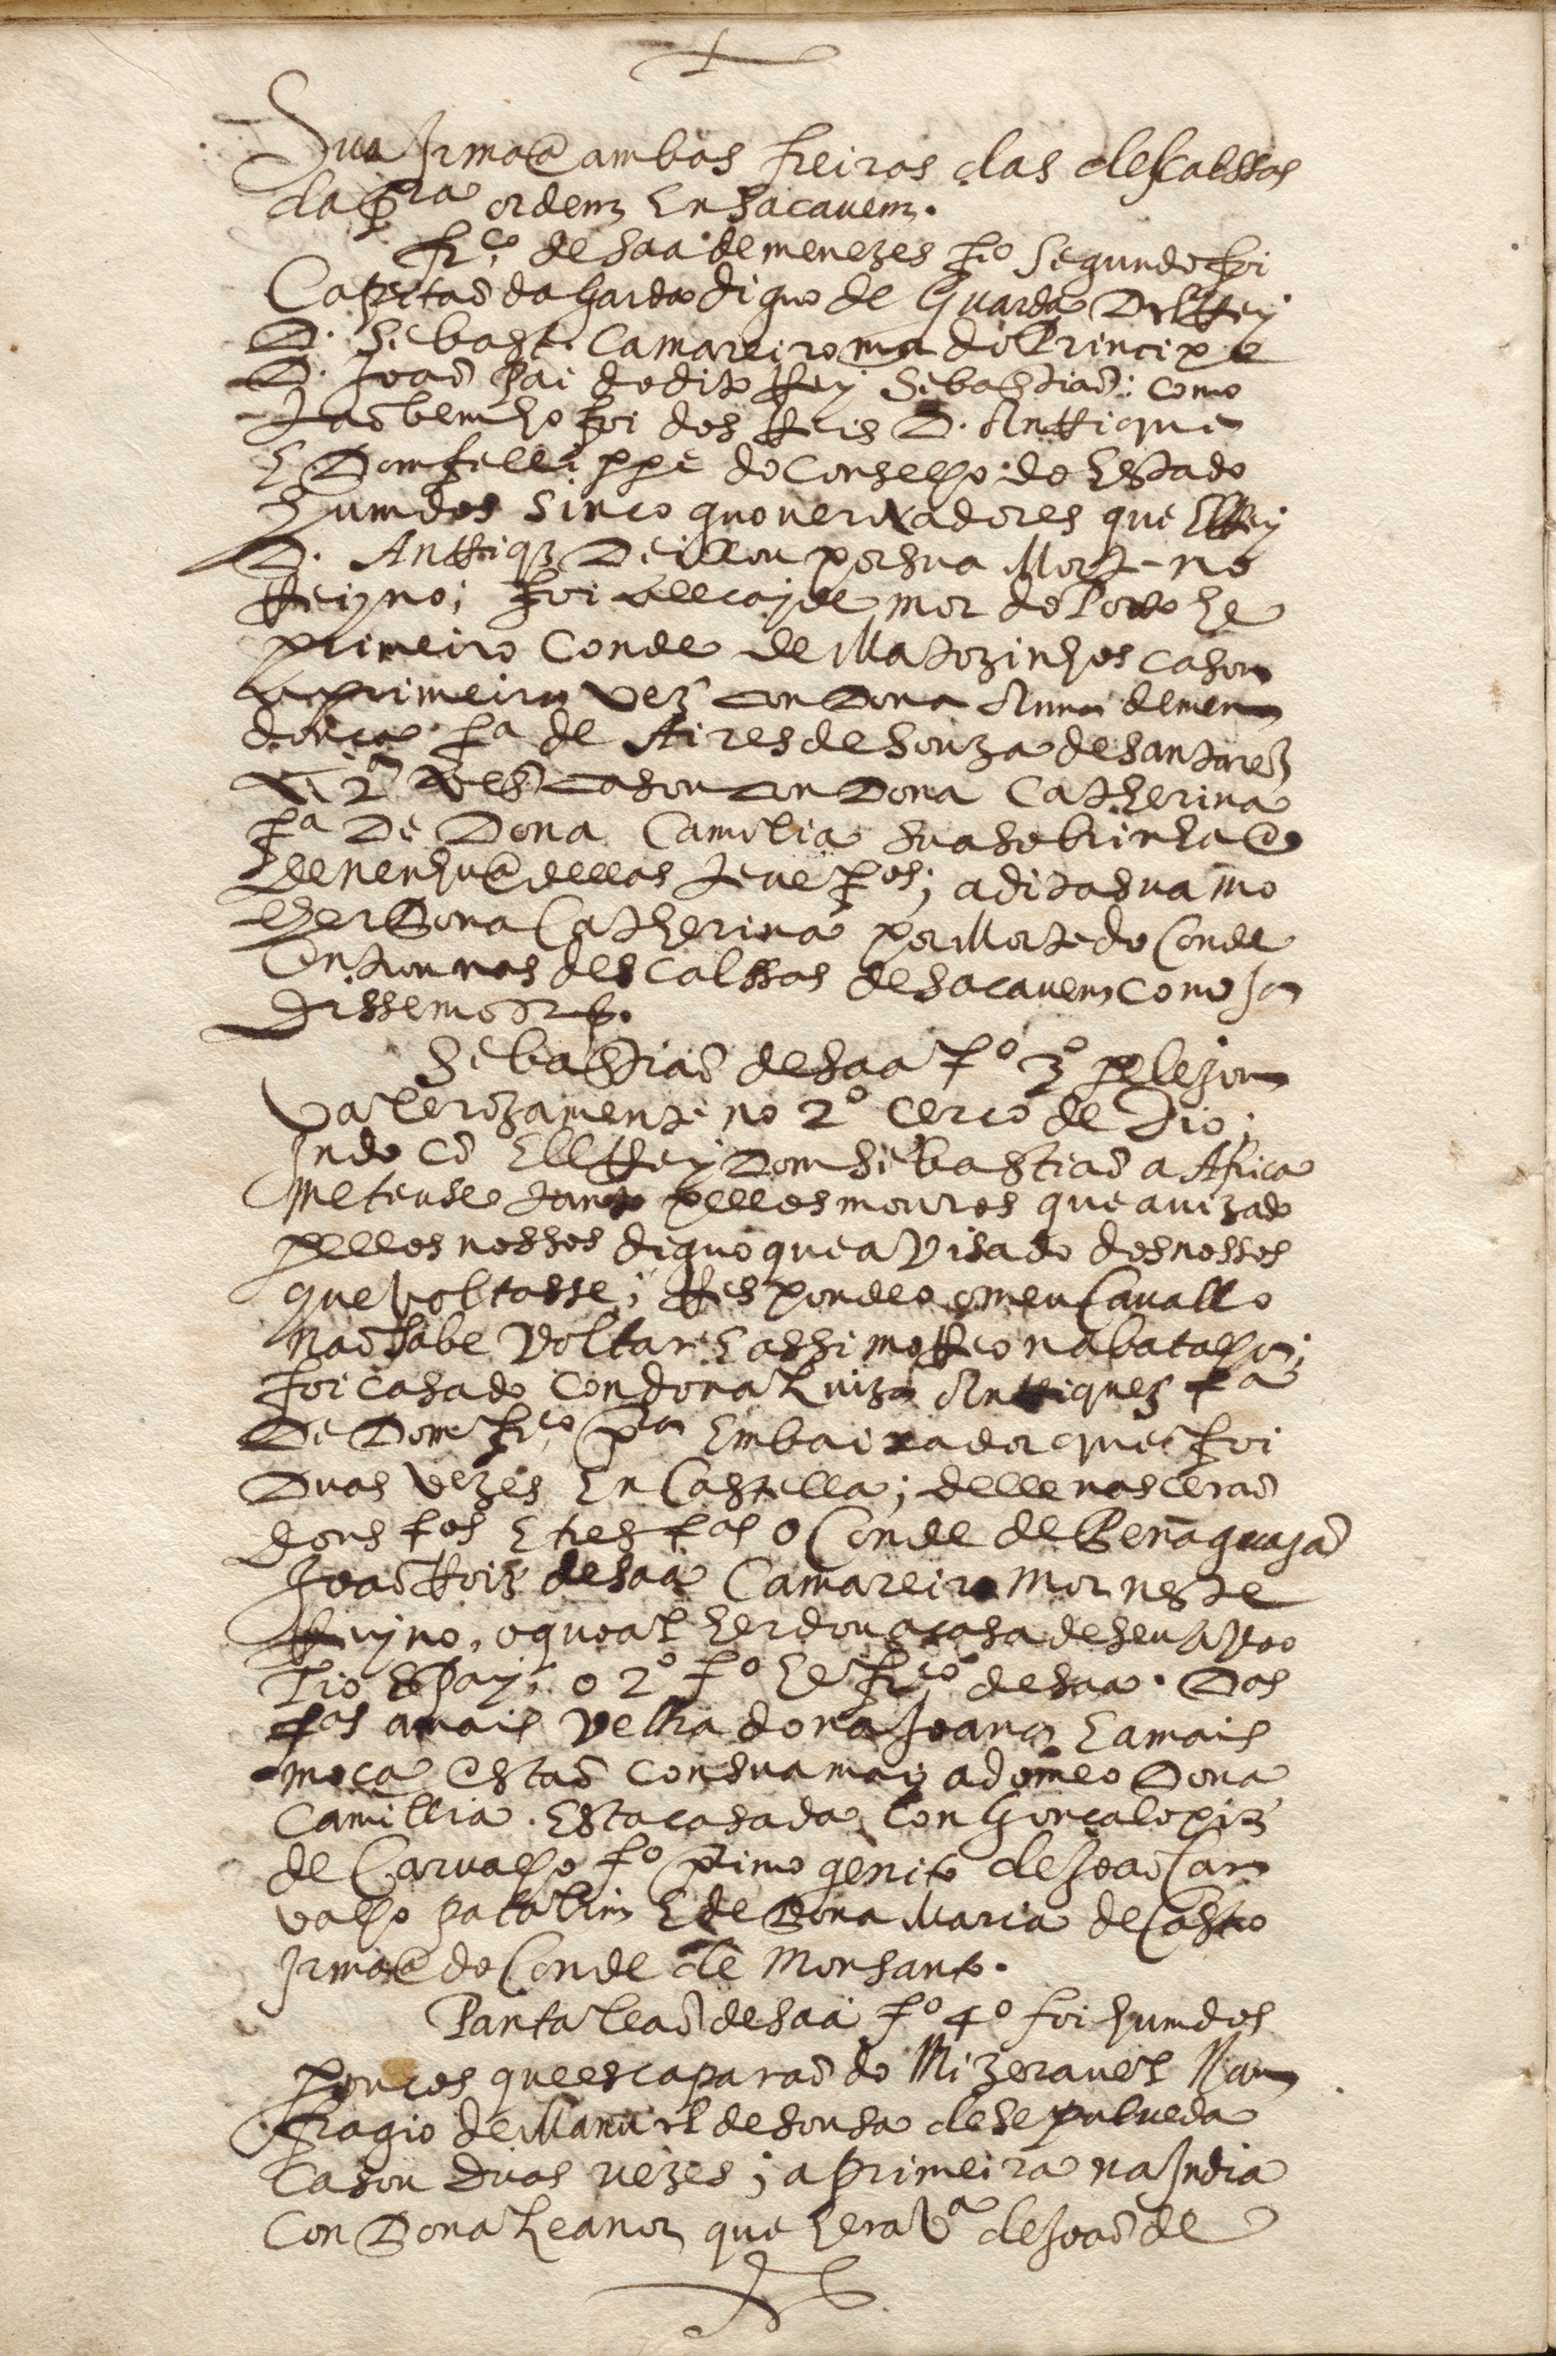 Sua Irmaã ambas freiras das descalssas
da pra ordem En sacauem.
fr.co de saa de menezes fo Segundo foi
Capitaõ da garda diguo de Guarda DelRey
D. Sebast. Camareiro mor do Principe
D. Joaõ Pai do dito Rey Sebastiaõ: como
taõbem ho foi dos Reis D. Anrrique
E Dom fellippe do Conselho do Estado
hum dos sinco guouernadores que ElRey
D. Anrriq3 Deixou por sua Morte no
Reyno; foi allcayde mor do Porto he
primeiro Conde de Matozinhos casou
a primeira vez con Dona Anna de men
donça fa de Aires de Souza de santarem
A 2a ves casou con Dona Catherina
fa De Dona Camilia sua sobrinhaã
E de nenhuã dellas teue fos; a dita sua mo
lher Dona Catherina por Morte do Conde
Entrou nas descalssas de sacauem como Ja
dissemos.
Sebastiaõ de saa fo 3o pelejou
Valerozamente no 2o cerco de Dio;
Indo cõ EllRey Dom Sebastiaõ a Africa
meteusse tanto pellos mouros que auizado
pellos nossos diguo que aVisado dos nossos
que voltasse; Respondeo o meu Cauallo
naõ sabe Voltar E assi morreo na batalha;
foi casado con dona Luiza Anrriquez fa
De Dom fr.co pra Embaixador que foi
Duas vezes En Castella; delle nasceraõ
dous fos E tres fas o Conde de Penaguajaõ
Joaõ Roiz de saa Camareiro Mor neste
Reyno, o qual herdou a casa de seu Avoo
Tio E Pay; o 2o fo he fr.co de saa. Das
fas a mais Velha dona Joana E a mais
moca Estaõ con sua may a do meo Dona
Camillia. Esta casada Con Gonçalo piz
de Carualho fo primo genito de Joaõ Car
valho patalim E de Dona Maria de Castro
Irmaã do Conde de Monsanto.
Pantaleaõ de saa fo 4o foi hum dos
poucos que escaparaõ do Mizerauel Nau
fragio de Manuel de sousa de Sepulueda
Casou Duas vezes; a primeira na India
Con Dona Leanor que hera Va de Joaõ de